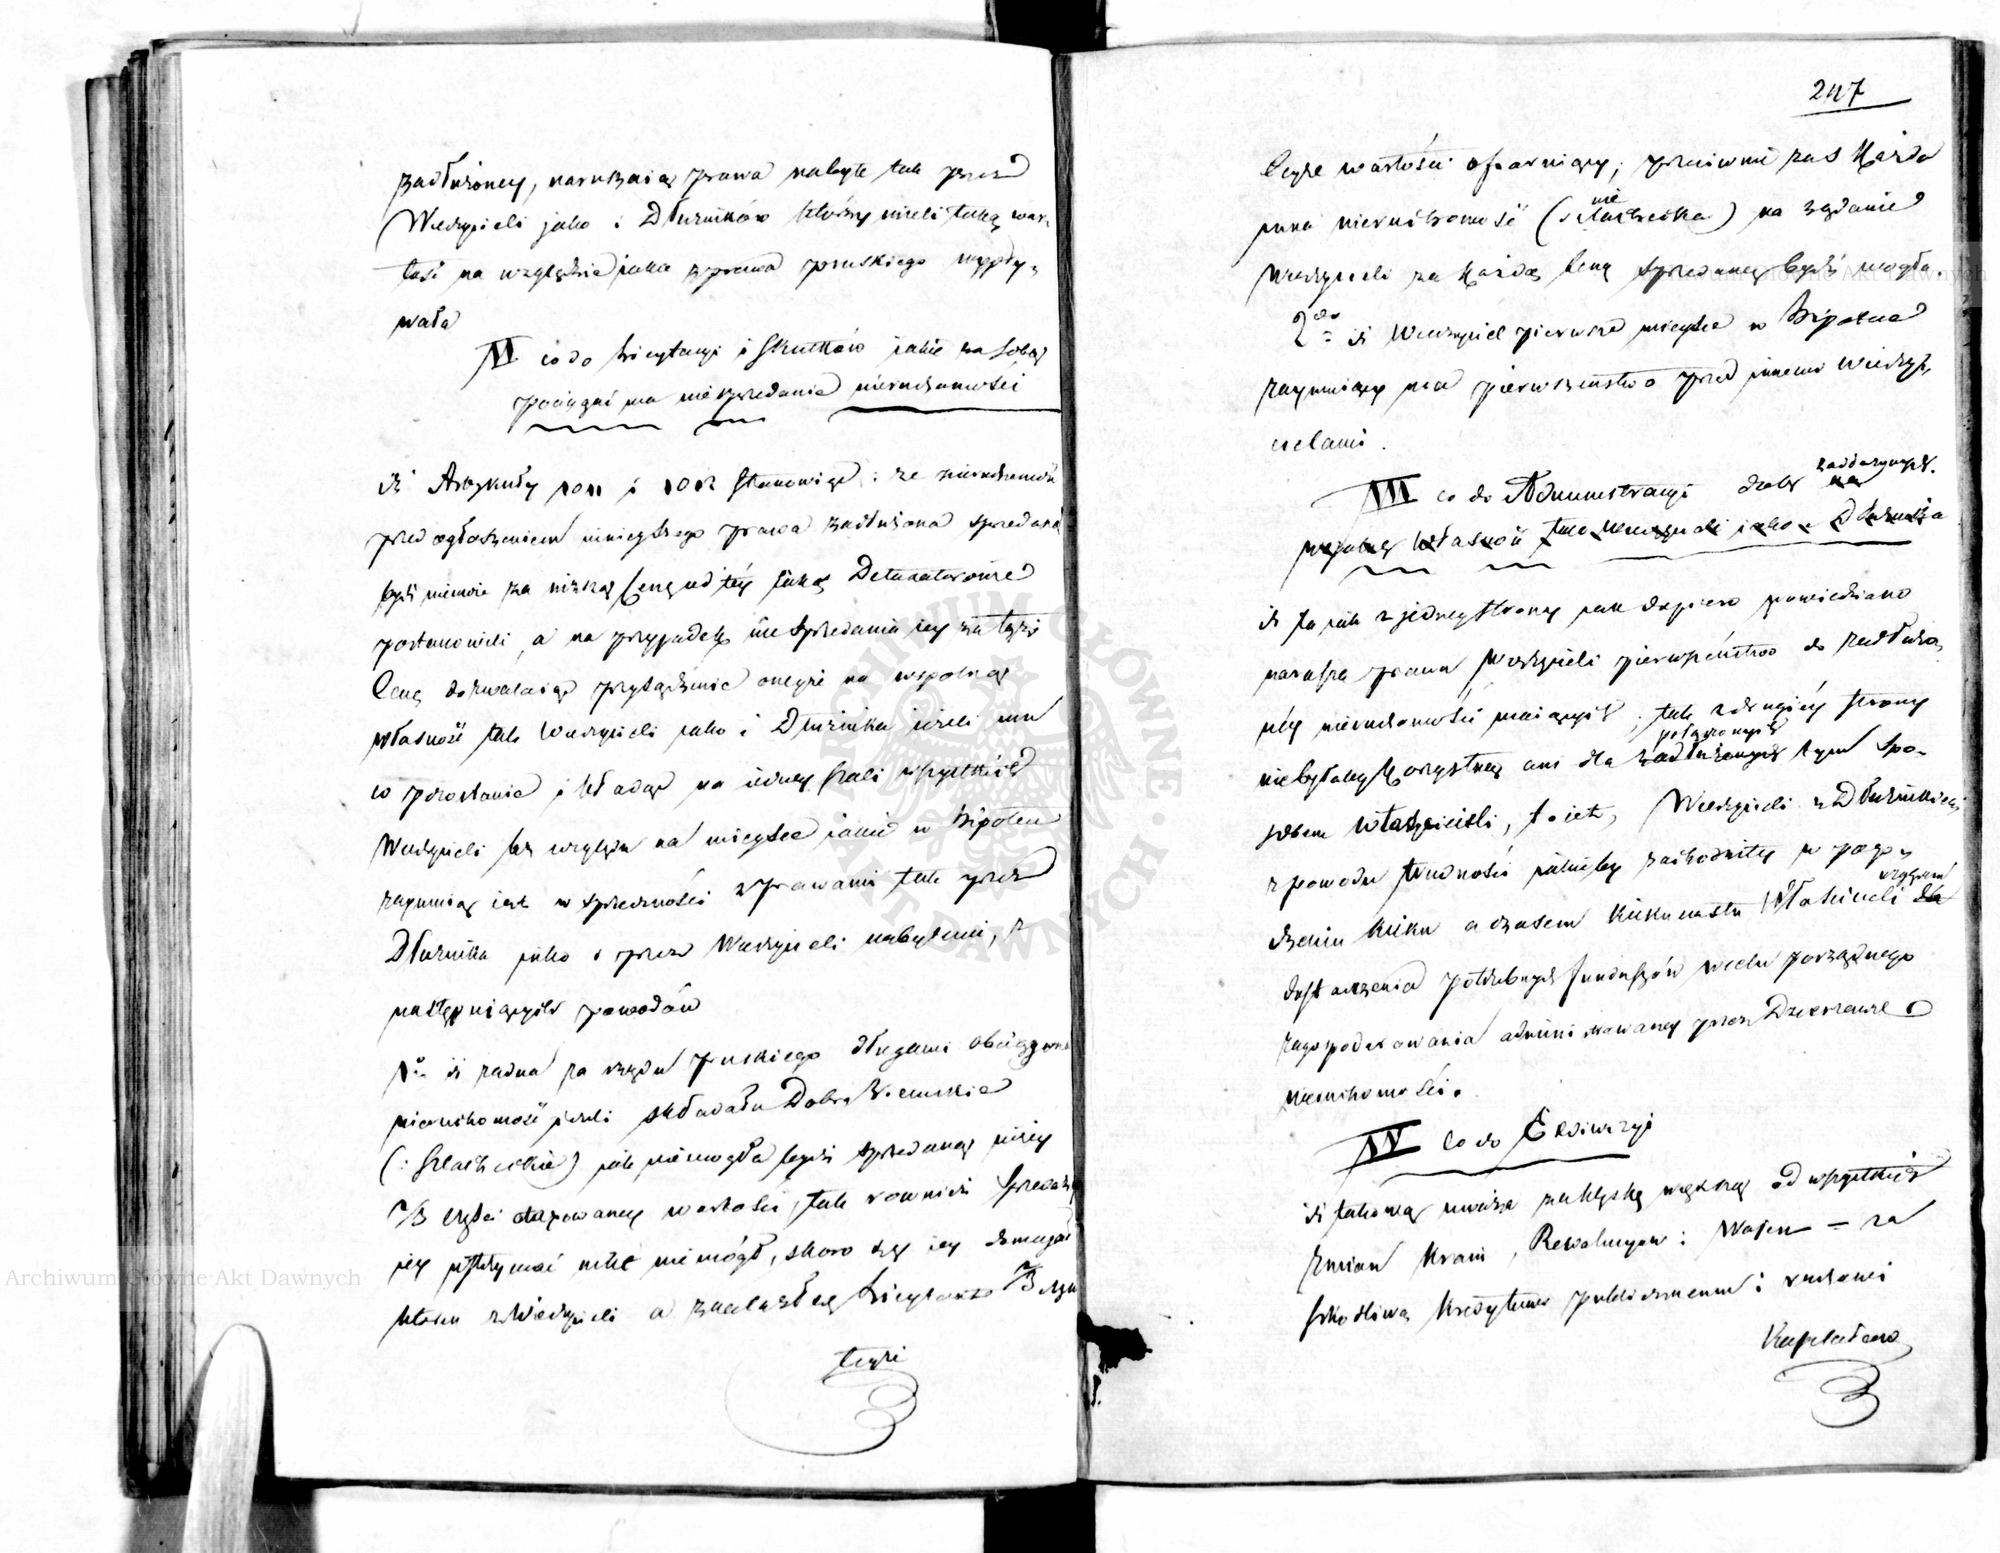 zadłużoney, naruszaią prawa nabyte tak przez
Wierzycieli jako i Dłużników którzy mieli taką war-
tość na względzie jaka z prawa pruskiego wypły-
wała
VI. co do Licytacyi i skutków jakie za sobą
pociągać ma niesprzedanie nieruchomości
iż Artykuły 1011 i 1012 stanowiąc: że nieruchomość
przed ogłoszeniem ninieyszego prawa zadłużona sprzedaną
bydź niemoże za niższą Cenę od tey jaką Detaxatorowie
postanowili, a na przypadek nie sprzedania jey za tęż
Cenę dozwalaiąc przysądzenie oneyże na wspólną
własność tak Wierzycieli jako i Dłużnika jeżeli mu
co pozostanie i kładąc na jedney szali wszystkich
Wierzycieli bez względu na mieysce jakie w Hipotece
zaymuią jest w sprzeczności z prawami tak przez
Dłużnika jako i przez Wierzycieli nabytemi, z
następuiących powodów
1o iż żadna za rządu pruskiego długami obciążona
nieruchomość jeżeli składała Dobra Ziemskie
(: szlacheckie) jak niemogła bydź sprzedaną niżey
2/3 części otaxowaney wartości, tak również sprzedaży
jey wstrzymać nikt nie mógł, skoro się jey domagał
który z Wierzycieli a znalazł się Licytant 2/3 częś
teyże
247
teyże wartości ofiaruiący; przeciwnie zaś każda
inna nieruchomość (nie szlachecka) na żądanie
Wierzycieli za każdą Cenę sprzedaną bydź mogła.
2do iż Wierzyciel pierwsze mieysce w Hipotece
zaymuiący ma pierwszeństwo przed innemi Wierzy-
cielami.
VII co do Administracyi dóbr zadłużonych.
na
wspólną własność tak Wierzycieli jako i Dłużnika
iż ta jak z jedney strony jak dopiero powiedziano
narusza prawa Wierzycieli pierwszeństwo do zadłużo-
ney nieruchomości maiących; tak z drugiey strony
połączonych
niebyłaby korzystną ani dla zadłużonych tym spo-
sobem właścicieli, to iest, Wierzycieli z Dłużnikiem
z powodu trudności jakieby zachodziły w poro-
względem
dzeniu kilku a czasem kilkunastu Właścicieli dla
dostarczenia potrzebnych funduszów wedle porządnego
zagospodarowania administrowaney przez Dzierżawę
nieruchomości.
IV co do Exdiwizyi
iż takową uważa za klęskę większą od wszystkich
zmian kraiu, Rewolucyow i Woien — za
szkodliwą kredytowi publicznemu i ruchowi
Kapitałów